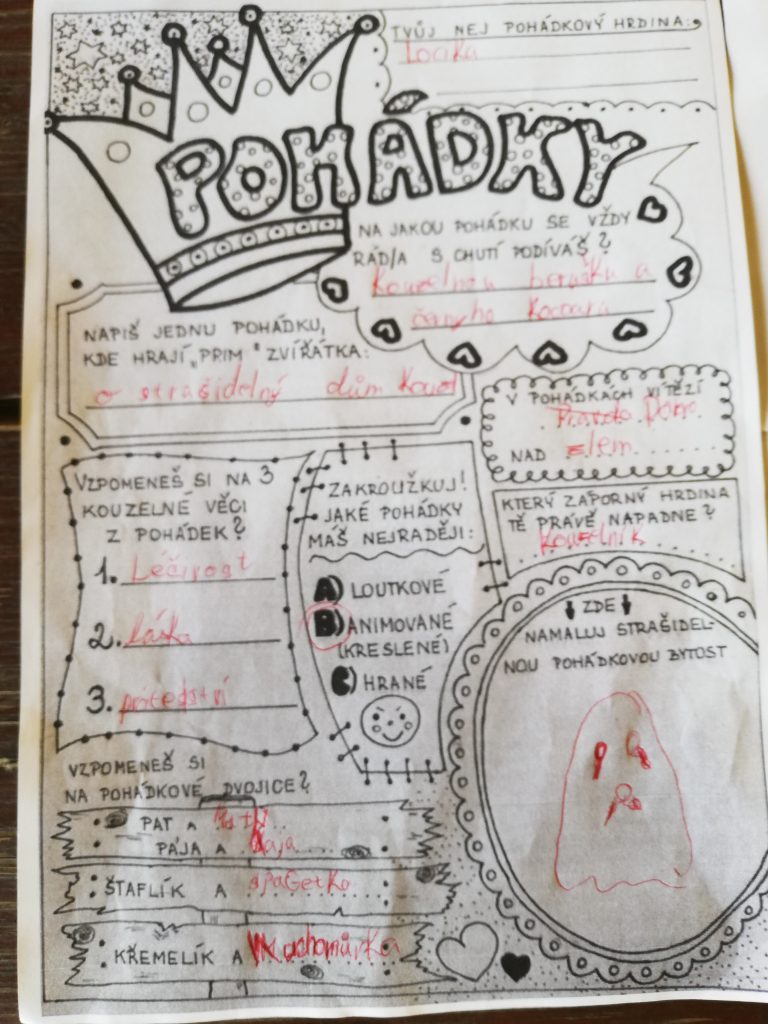 TVŮJ NEJ POHÁDKOVÝ HRDINA:
Locika
POHÁDKY
NA JAKOU POHÁDKU SE VŽDY
RÁD/A S CHUTÍ PODÍVÁŠ?
Kouzelnou berušku a
černyho Kocoura
NAPIŠ JEDNU POHÁDKU,
KDE HRAJÍ „PRIM" ZVÍŘÁTKA:
o strašidelný dům Kouzl
V POHÁDKÁCH VÍTĚZÍ
Pravda Dobro
NAD zlem
VZPOMENEŠ SI NA 3
KOUZELNÉ VĚCI
Z POHÁDEK?
1. Léčivost
2. láska
3.
ZAKROUŽKUJ!
JAKÉ POHÁDKY
MÁŠ NEJRADĚJI:
A) LOUTKOVÉ
B) ANIMOVANÉ
(KRESLENÉ)
C) HRANÉ
KTERÝ ZÁPORNÝ HRDINA
TĚ PRÁVĚ NAPADNE?
Kouzelník
ZDE
NAMALUJ STRAŠIDEL-
NOU POHÁDKOVOU BYTOST
VZPOMENEŠ SI
NA POHÁDKOVÉ DVOJICE?
PAT A Mat
PÁJA A
ŠTAFLÍK A sPaGetka
KŘEMELÍK A Vochomůrka